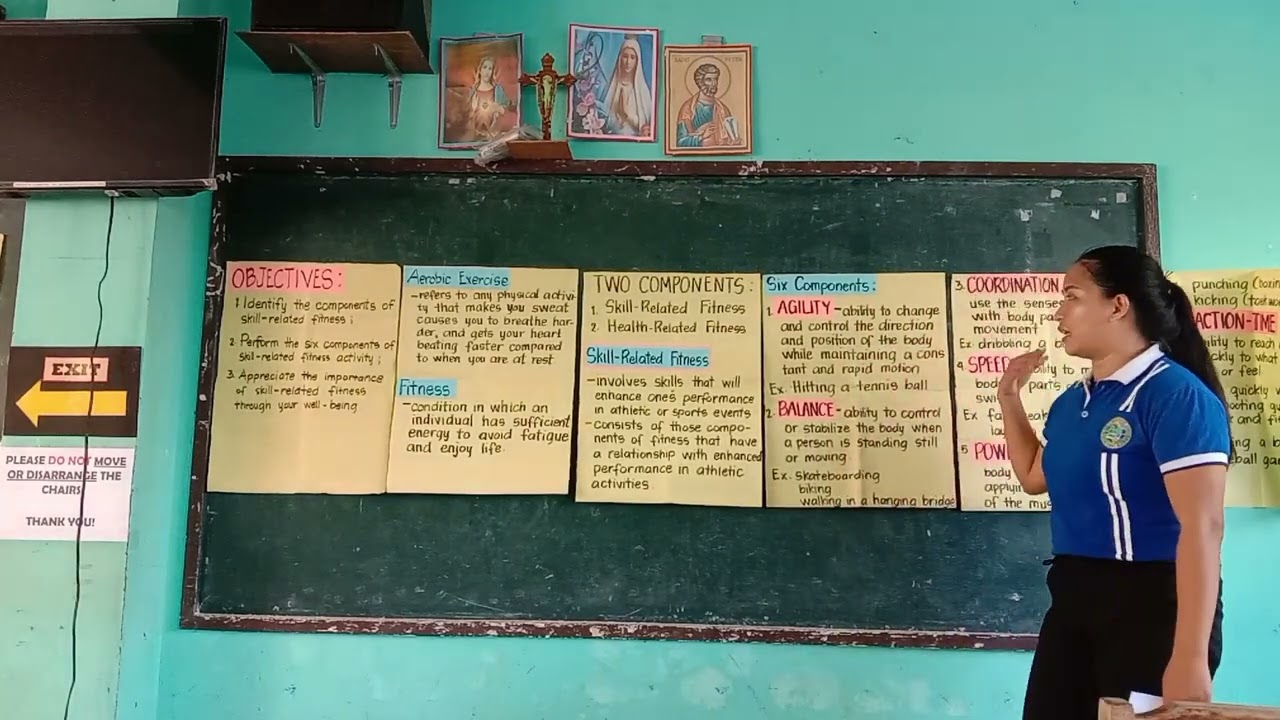 SAINT PETER
EXIT
PLEASE DO NOT MOVE
OR DISARRANGE THE
CHAIRS
THANK YOU!
OBJECTIVES:
1 Identify the components of
skill-related fitness;
2. Perform the six components of
skil-related fitness activity;
3. Appreciate the importance
of skill-related fitness
through your well-being
Aerobic Exercise
-refers to any physical activi-
ty that makes you sweat
causes you to breathe har-
der, and gets your heart
beating faster compared
to when you are at rest.
Fitness
-condition in which an
individual has sufficient
energy to avoid fatigue
and enjoy life.
TWO COMPONENTS:
1. Skill-Related Fitness
2. Health-Related Fitness
Skill-Related Fitness
-involves skills that will
enhance one's performance
in athletic or sports events
-consists of those compo-
nents of fitness that have
a relationship with enhanced
performance in athletic
activities
Six Components:
1. AGILITY-ability to change
and control the direction
and position of the body
while maintaining a cons
tant and rapid motion
Ex. Hitting a tennis ball
2. BALANCE-ability to control
or stabilize the body when
a person is standing still
or moving
Ex. Skateboarding
biking
walking in a hanging bridge
3. COORDINATION
use the senses
with body
movement
Ex dribbling a
4. SPEED
body parts
Ex
5
body
of the
punching
kicking
to reach
to what
or feel
quickly